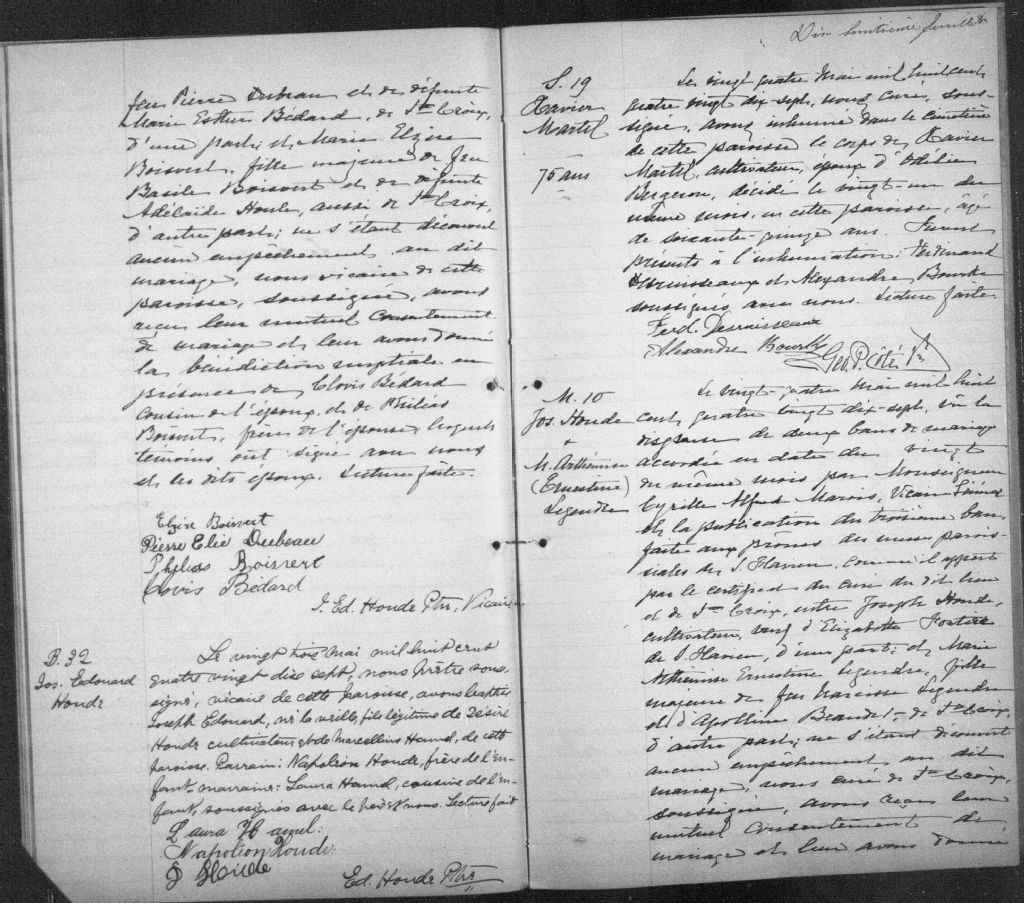 feu Pierre Dubeau et de défunte
Marie Esther Bédard, de Ste Croix,
d'une part; et Marie Elzire
Boisvert, fille majeure de feu
Basile Boisvert et de défunte
Adélaïde Houle, aussi de Ste Croix,
d'autre part; ne s'étant découvert
aucun empêchement au dit
mariage, nous vicaire de cette
paroisse, soussigné, avons
reçu leur mutuel consentement
de mariage et leur avons donné
la bénédiction nuptiale en
présence de Clovis Bédard
cousin de l'époux, et de Philéas
Boisvert, frère de l'épouse, lesquels
témoins ont signé avec nous
et les dits époux. Lecture faite.
Elzire Boisvert
Pierre Elie Dubeau
Phileas Boisvert
Clovis Bédard
J. Ed. Houde Ptre, Vicaire
B. 32
Jos. Edouard
Houde
Le vingt trois Mai mil huit cent
quatre vingt dix sept, nous prêtre sous-
signé, vicaire de cette paroisse, avons baptisé
Joseph Edouard, né la veille, fils légitime de Désiré
Houde cultivateur et de Marcelline Hamel, de cette
paroisse. Parrain: Napoléon Houde, frère de l'en-
fant, marraine: Laura Hamel, cousine de l'en-
fant, soussignés avec le père et nous. Lecture faite
Laura Hamel:
Napoléon Houde:
D Houde
Ed. Houde Ptre
Dix huitième feuillet
S. 19
Xavier
Martel
75 ans
Le vingt quatre Mai mil huit cent
quatre vingt dix-sept, nous curé, sous-
signé, avons inhumé dans le cimetière
de cette paroisse le corps de Xavier
Martel, cultivateur, époux d'Odélie
Bergeron, décédé le vingt-un du
même mois, en cette paroisse, âgé
de soixante-quinze ans. Furent
présents à l'inhumation: Ferdinand
Desruisseaux et Alexandre Bourke
soussignés avec nous. Lecture faite
Ferd. Desruisseaux
Alexandre Bourke
Geo. P. Côté Ptre
M. 10
Jos. Houde
+
M. Arthémise
(Ernestine)
Legendre
Le vingt-quatre Mai mil huit
cent quatre vingt dix-sept, vû la
dispense de deux bans de mariage
accordée en date du vingt
du même mois par Monseigneur
Cyrille Alfred Marois, Vicaire Général
et la publication du troisième ban
faite aux prônes des messes parois-
siales de S. Flavien, comme il appert
par le certificat du curé du dit lieu
et de Ste Croix, entre Joseph Houde,
cultivateur, veuf d'Elizabeth
de S. Flavien, d'une part; et Marie
Arthémise Ernestine Legendre, fille
majeure de feu Narcisse Legendre
et d'Apolline Beaudet de Ste Croix,
d'autre part; ne s'étant découvert
aucun empêchement au dit
mariage, nous curé de Ste Croix,
soussigné, avons reçu leur
mutuel consentement de
mariage et leur avons donné